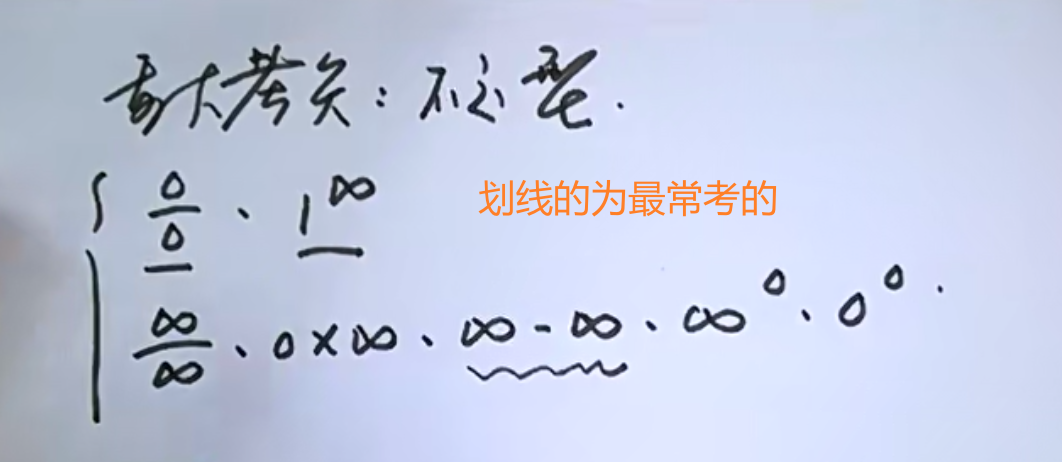 大考点：不定型.
0/0、1^∞
划线的为最常考的
∞/∞、0×∞、∞-∞、∞^0、0^0.